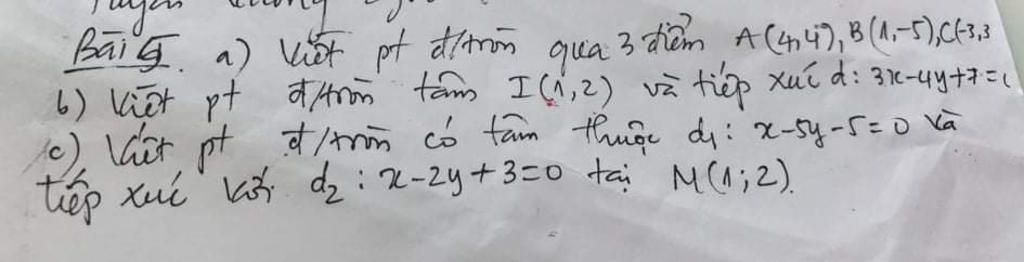 Bài 5. a) Viết pt đ/tròn qua 3 điểm A(4,4), B(1,-5), C(-3,3
b) Viết pt đ/tròn tâm I(1,2) và tiếp xúc d: 3x-4y+7=
c) Viết pt đ/tròn có tâm thuộc d₁: x-5y-5=0 và
tiếp xúc với d₂: x-2y+3=0 tại M(1;2).